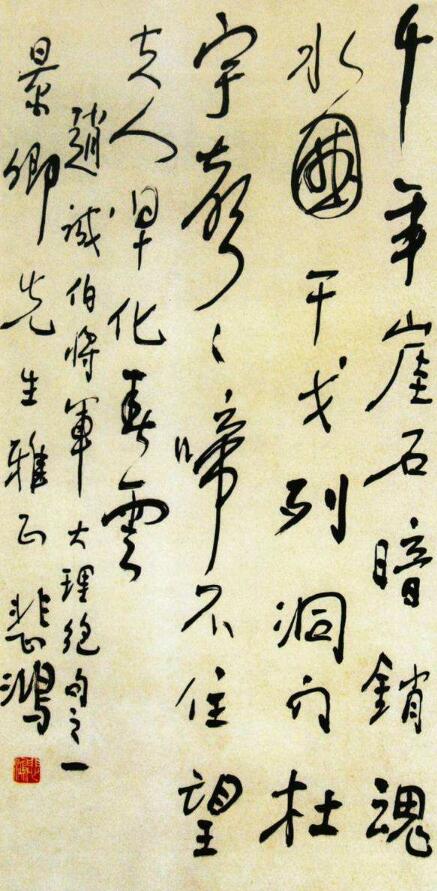 千年崖石暗銷魂
水國干戈列洞門杜
宇聲々啼不住望
夫人早化春雲
趙誠伯將軍大理絕句之一
景卿先生雅正悲鴻